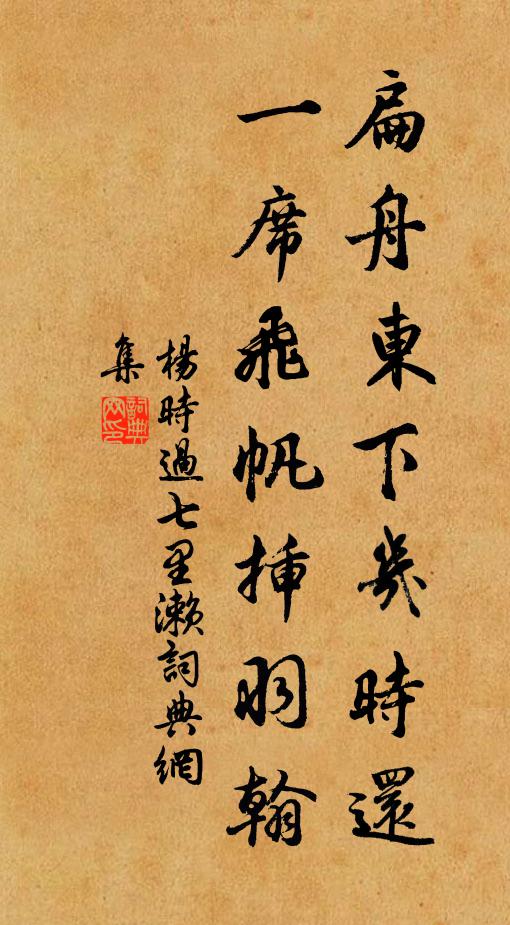 扁舟東下幾時還
一席飛帆揷羽翰
楊時過七里瀨詞典網
集
詞典
网印